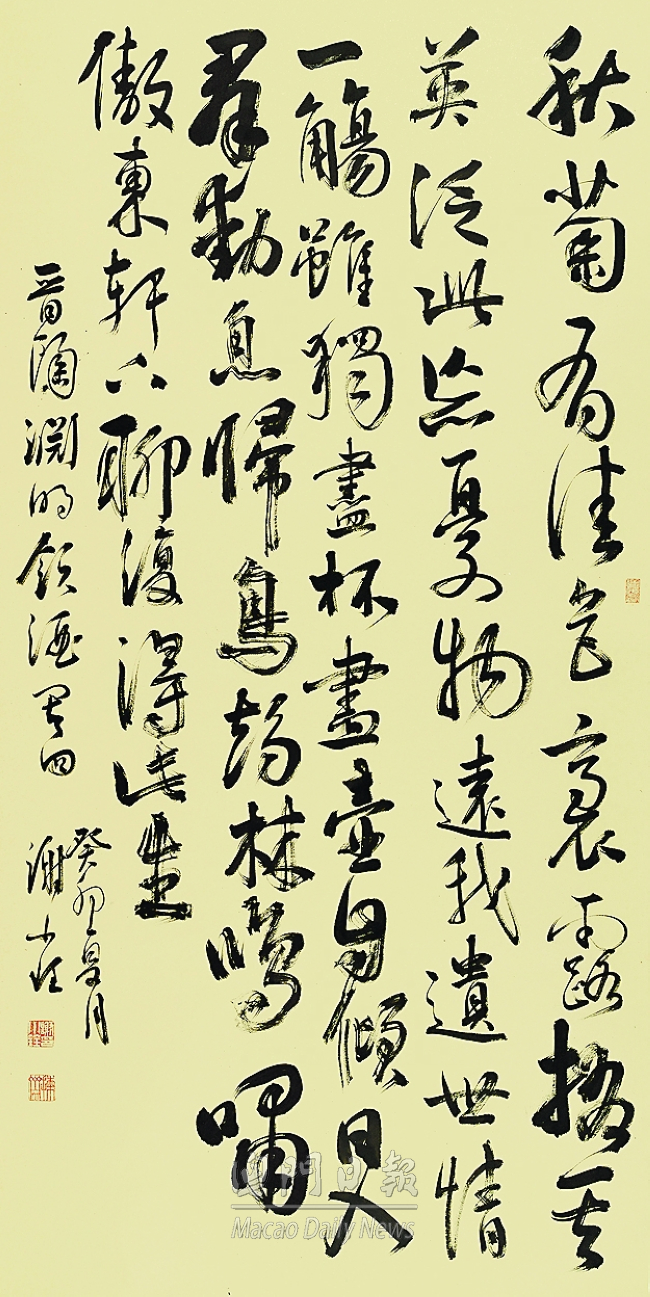 秋菊有佳色裛露掇其
英泛此忘憂物遠我遺世情
一觴雖獨盡杯盡壺自傾日入
羣動息歸鳥趨林鳴嘯
傲東軒下聊復得此生
晉陶淵明飲酒其四
癸卯夏月
謝小
澳門日報
Macao Daily News